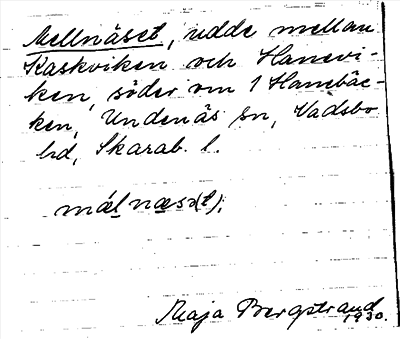 Mellnäset, udde mellan
Kaskviken och Hanevi-
ken, söder om 1 Hanebäc-
ken, Undenäs sn, Vadsbo
hd, Skarab. l.
mǽl næsə(t).
Maja Bergstrand
1930.